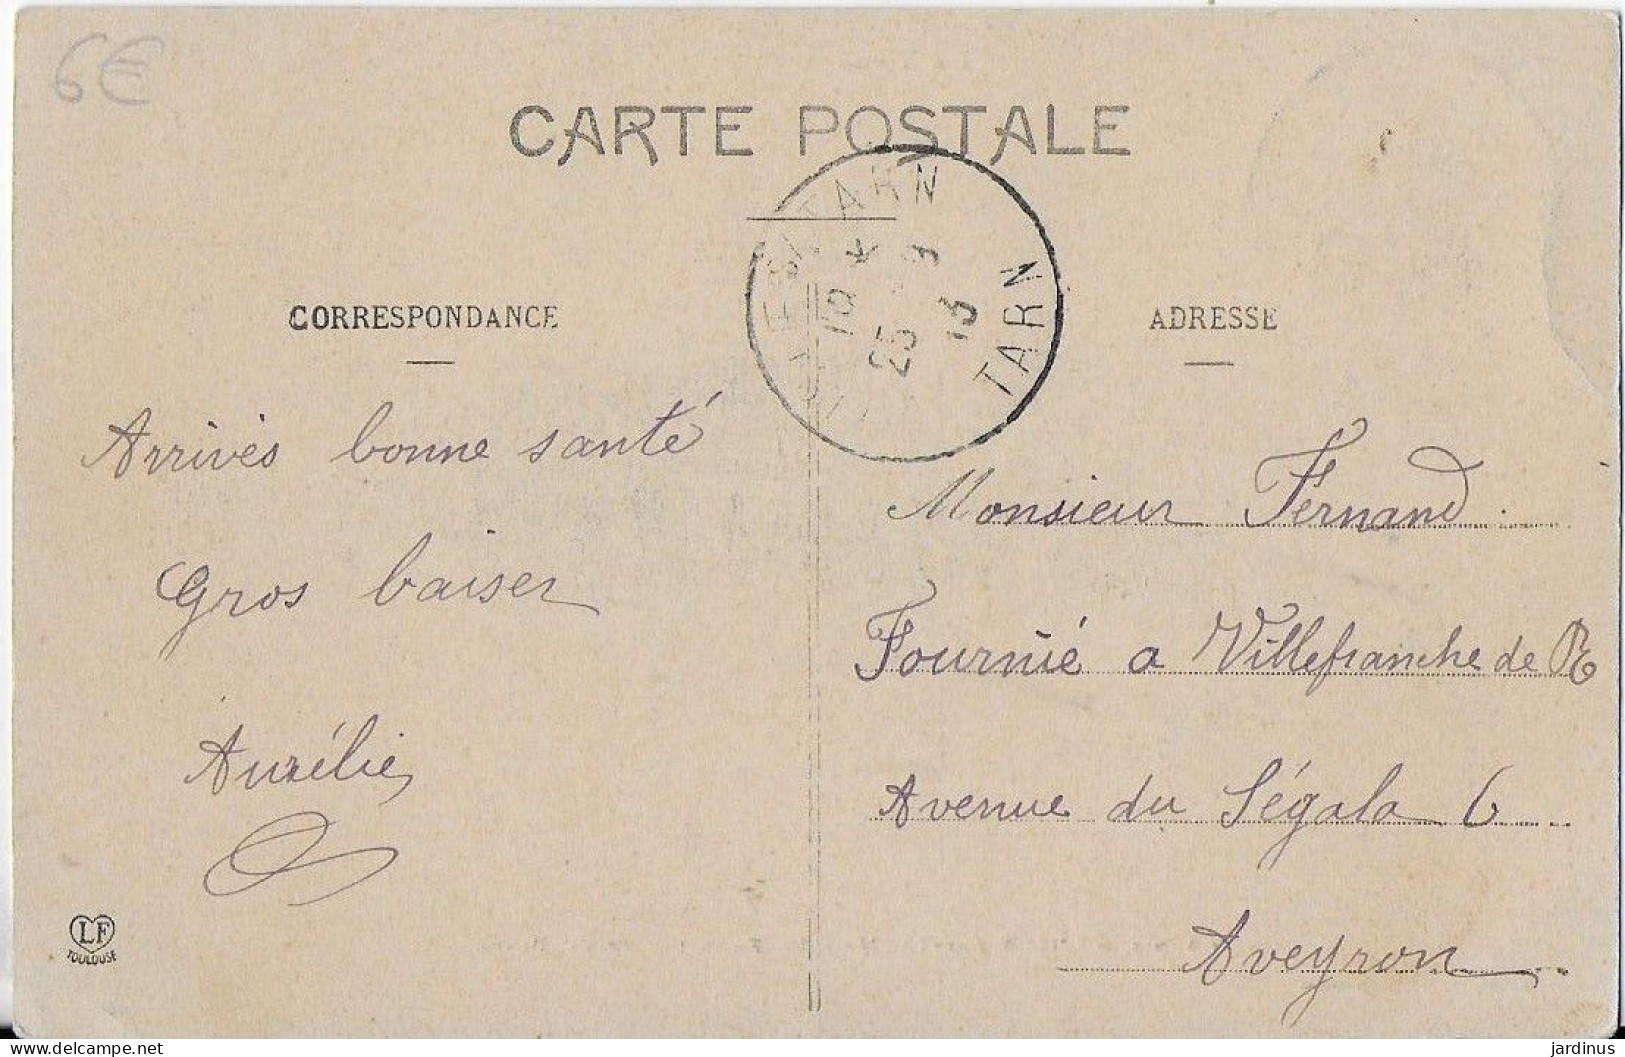 6€
CARTE POSTALE
CORRESPONDANCE
Arrivés bonne santé
Gros baiser
Aurélie
LF
TOULOUSE
TARN
10 *
25 - 9
13
TARN
ADRESSE
Monsieur Fernand
Fournié a Villefranche de R
Avenue du Ségala 6
Aveyron
delcampe.net
jardinus